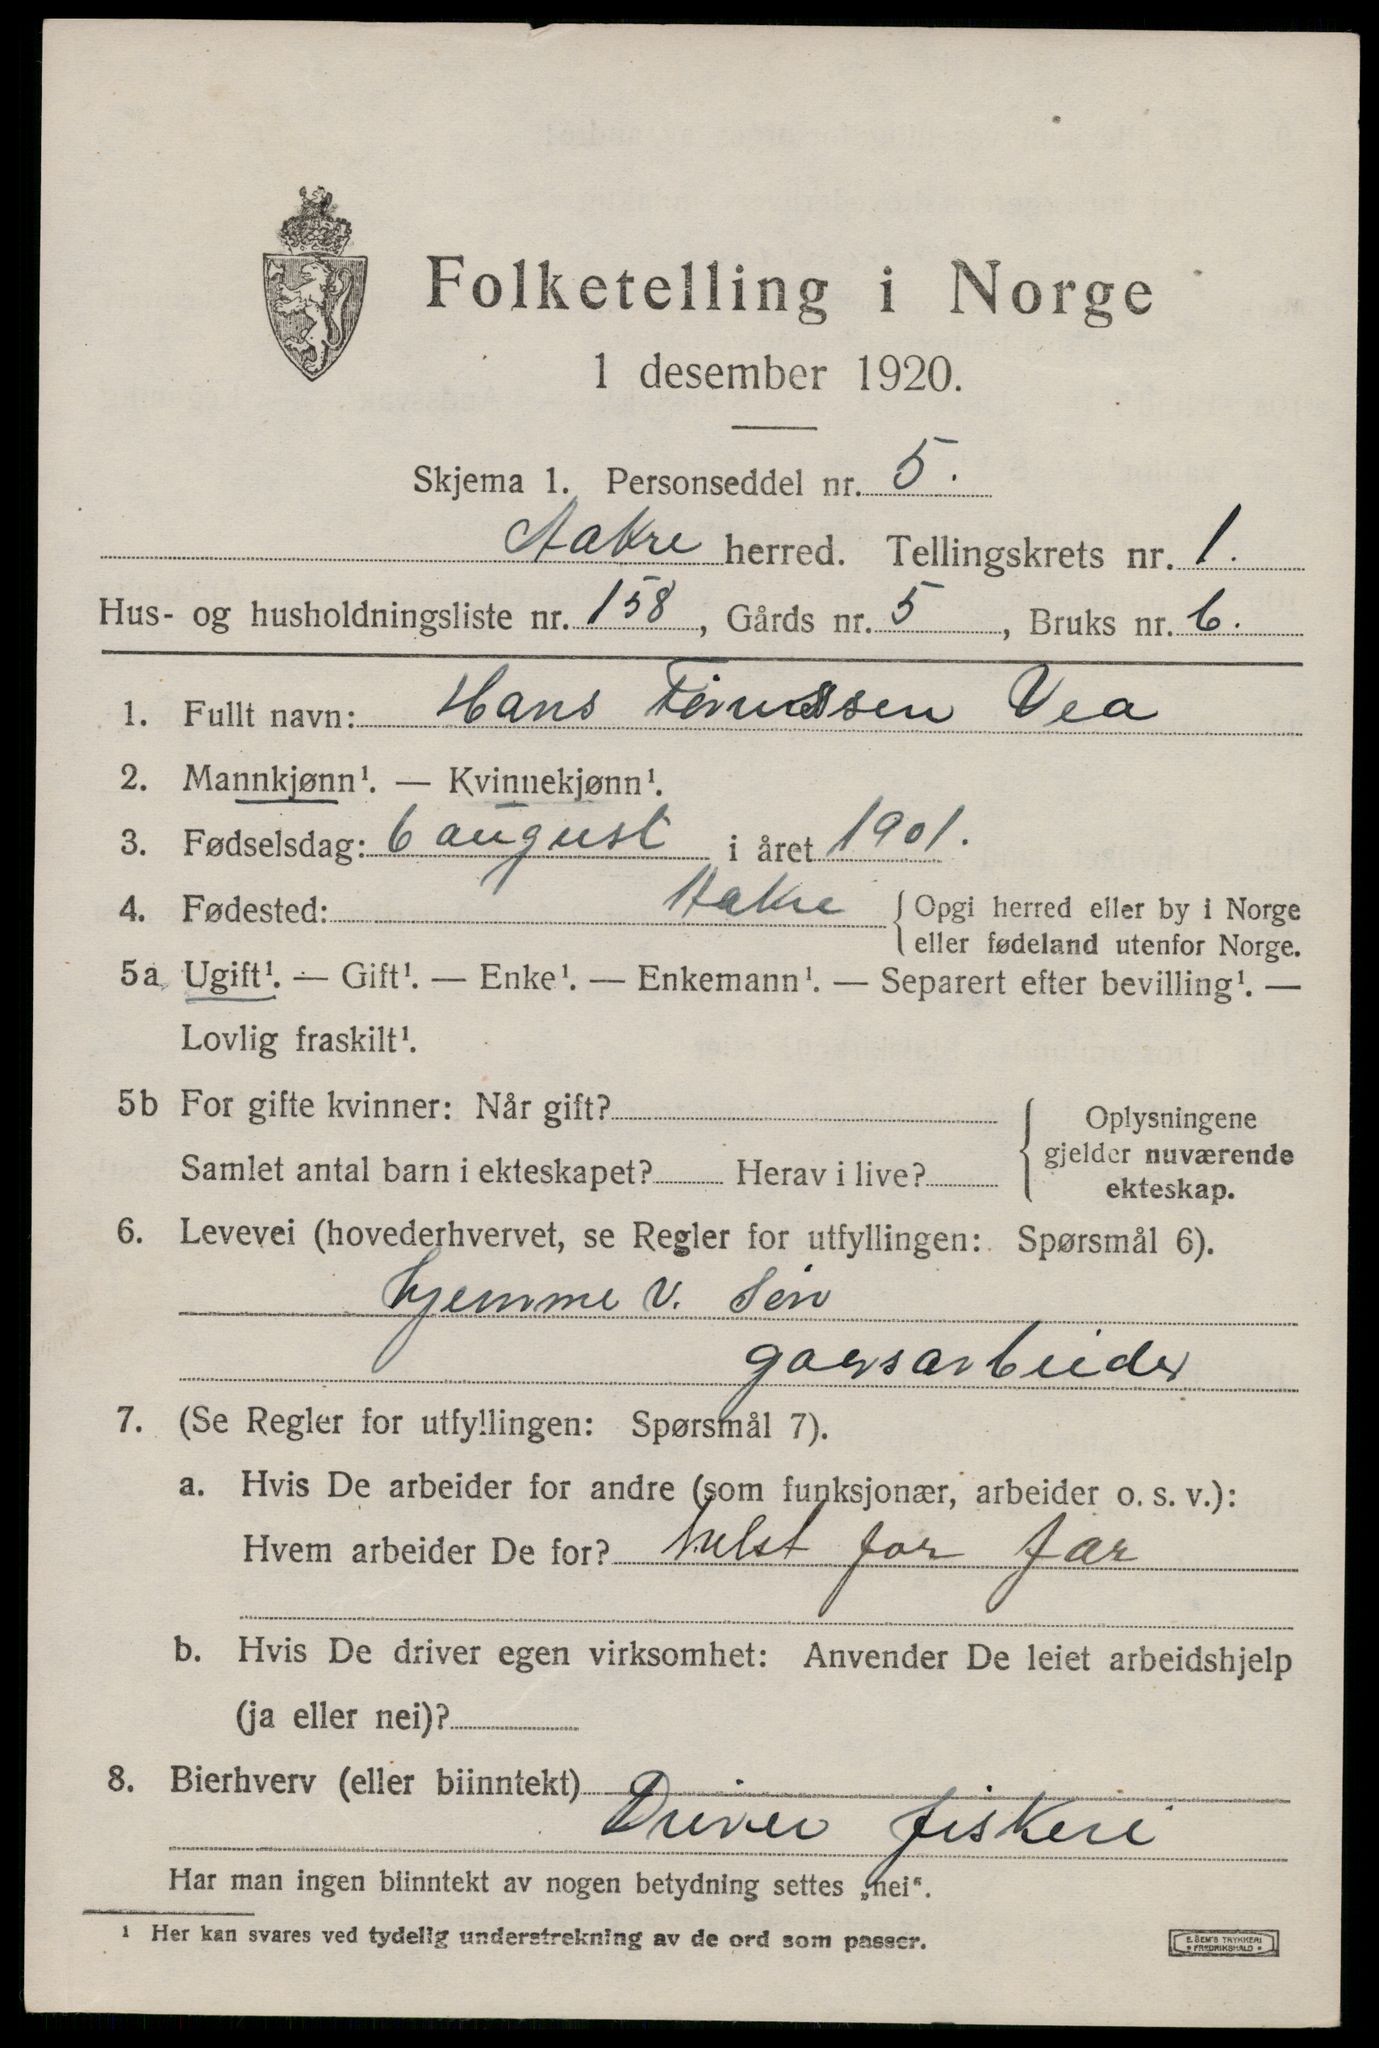 Folketelling i Norge
1 desember 1920.
Skjema 1. Personseddel nr. 5.
Aakre herred. Tellingskrets nr. 1.
Hus- og husholdningsliste nr. 158, Gårds nr. 5, Bruks nr. 6.
1. Fullt navn: Hans Vea
2. Mannkjønn¹. — Kvinnekjønn¹.
3. Fødselsdag: 6 august i året 1901.
4. Fødested: Aakre { Opgi herred eller by i Norge
eller fødeland utenfor Norge.
5a Ugift¹. — Gift¹. — Enke¹. — Enkemann¹. — Separert efter bevilling¹. —
Lovlig fraskilt¹.
5b For gifte kvinner: Når gift?
Samlet antal barn i ekteskapet? Herav i live?
{ Oplysningene
gjelder nuværende
ekteskap.
6. Levevei (hovederhvervet, se Regler for utfyllingen: Spørsmål 6).
hjemme v. Sön
7. (Se Regler for utfyllingen: Spørsmål 7).
a. Hvis De arbeider for andre (som funksjonær, arbeider o. s. v.):
Hvem arbeider De for? helst for far
b. Hvis De driver egen virksomhet: Anvender De leiet arbeidshjelp
(ja eller nei)?
8. Bierhverv (eller biinntekt)
Driver fiskeri
Har man ingen biinntekt av nogen betydning settes „nei“.
¹ Her kan svares ved tydelig understrekning av de ord som passer.
E. SEM'S TRYKKERI
• FREDRIKSHALD •